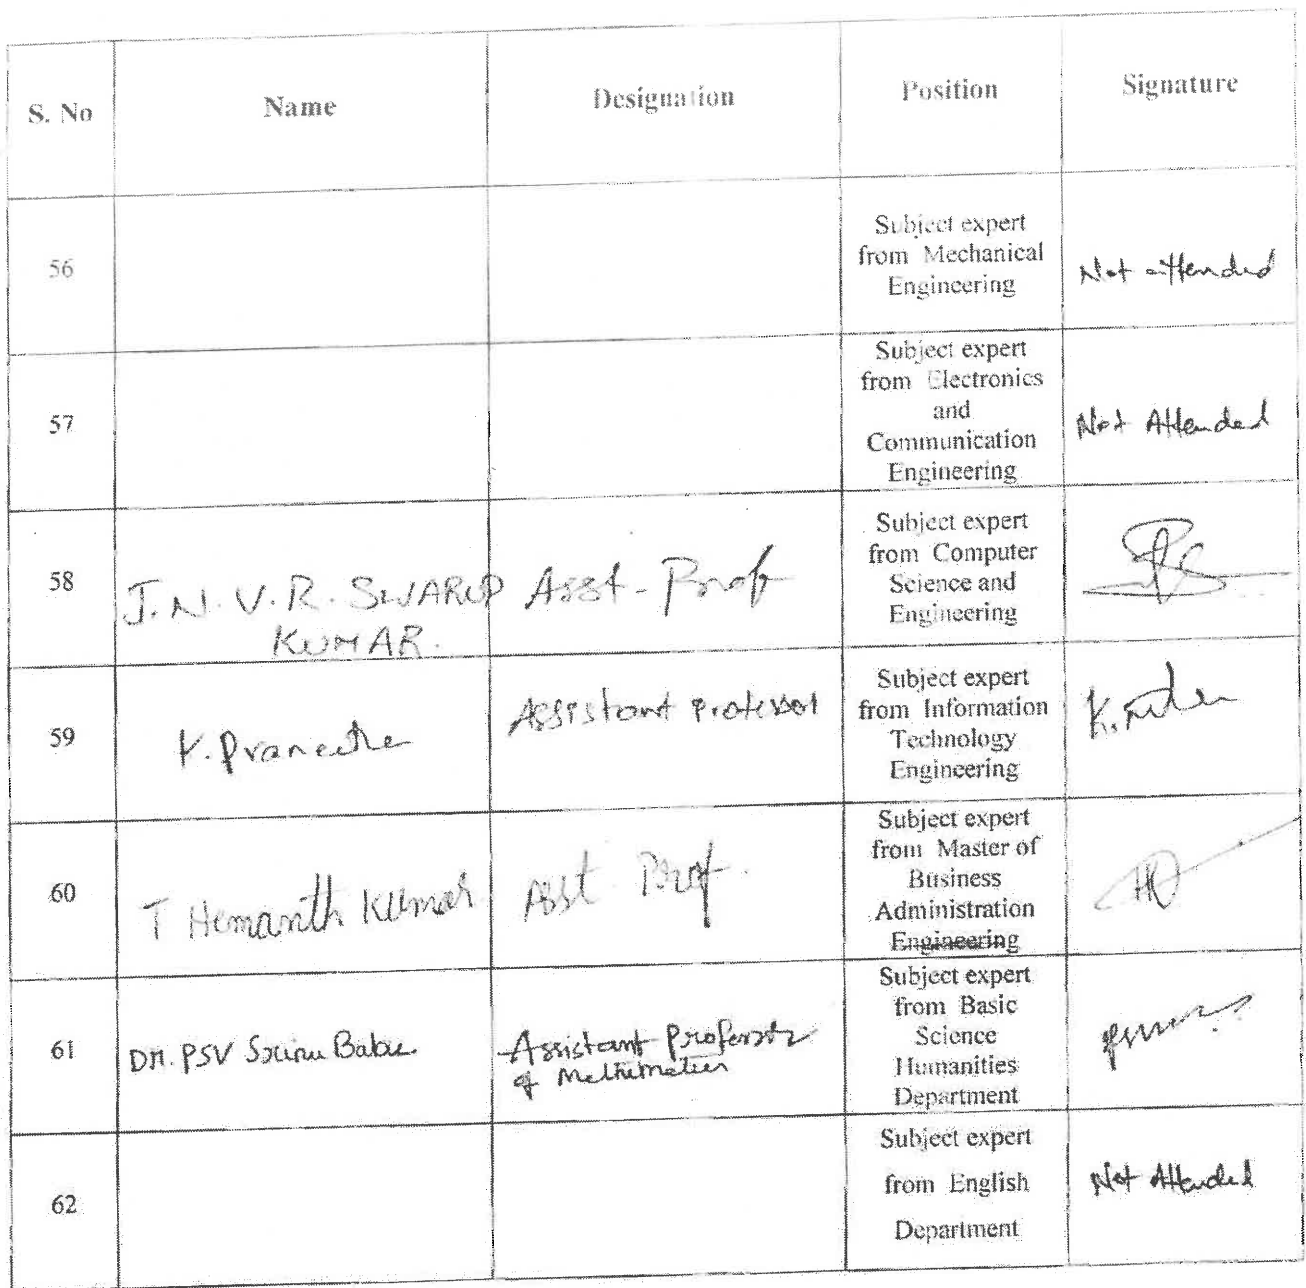 S. No Name Designation Position Signature
56
Subject expert
from Mechanical
Engineering
Not attended
57
Subject expert
from Electronics
and
Communication
Engineering
Not Attended
58
J. N. V. R. SWARUP
KUMAR.
Asst. Prof
Subject expert
from Computer
Science and
Engineering
59
K. Praneetha
Assistant Professor
Subject expert
from Information
Technology
Engineering
60
T Hemanth Kumar
Asst. Prof.
Subject expert
from Master of
Business
Administration
Engineering
61
Dr. PSV Srinu Babu
Assistant Professor
of Mathematics
Subject expert
from Basic
Science
Humanities
Department
62
Subject expert
from English
Department
Not Attended